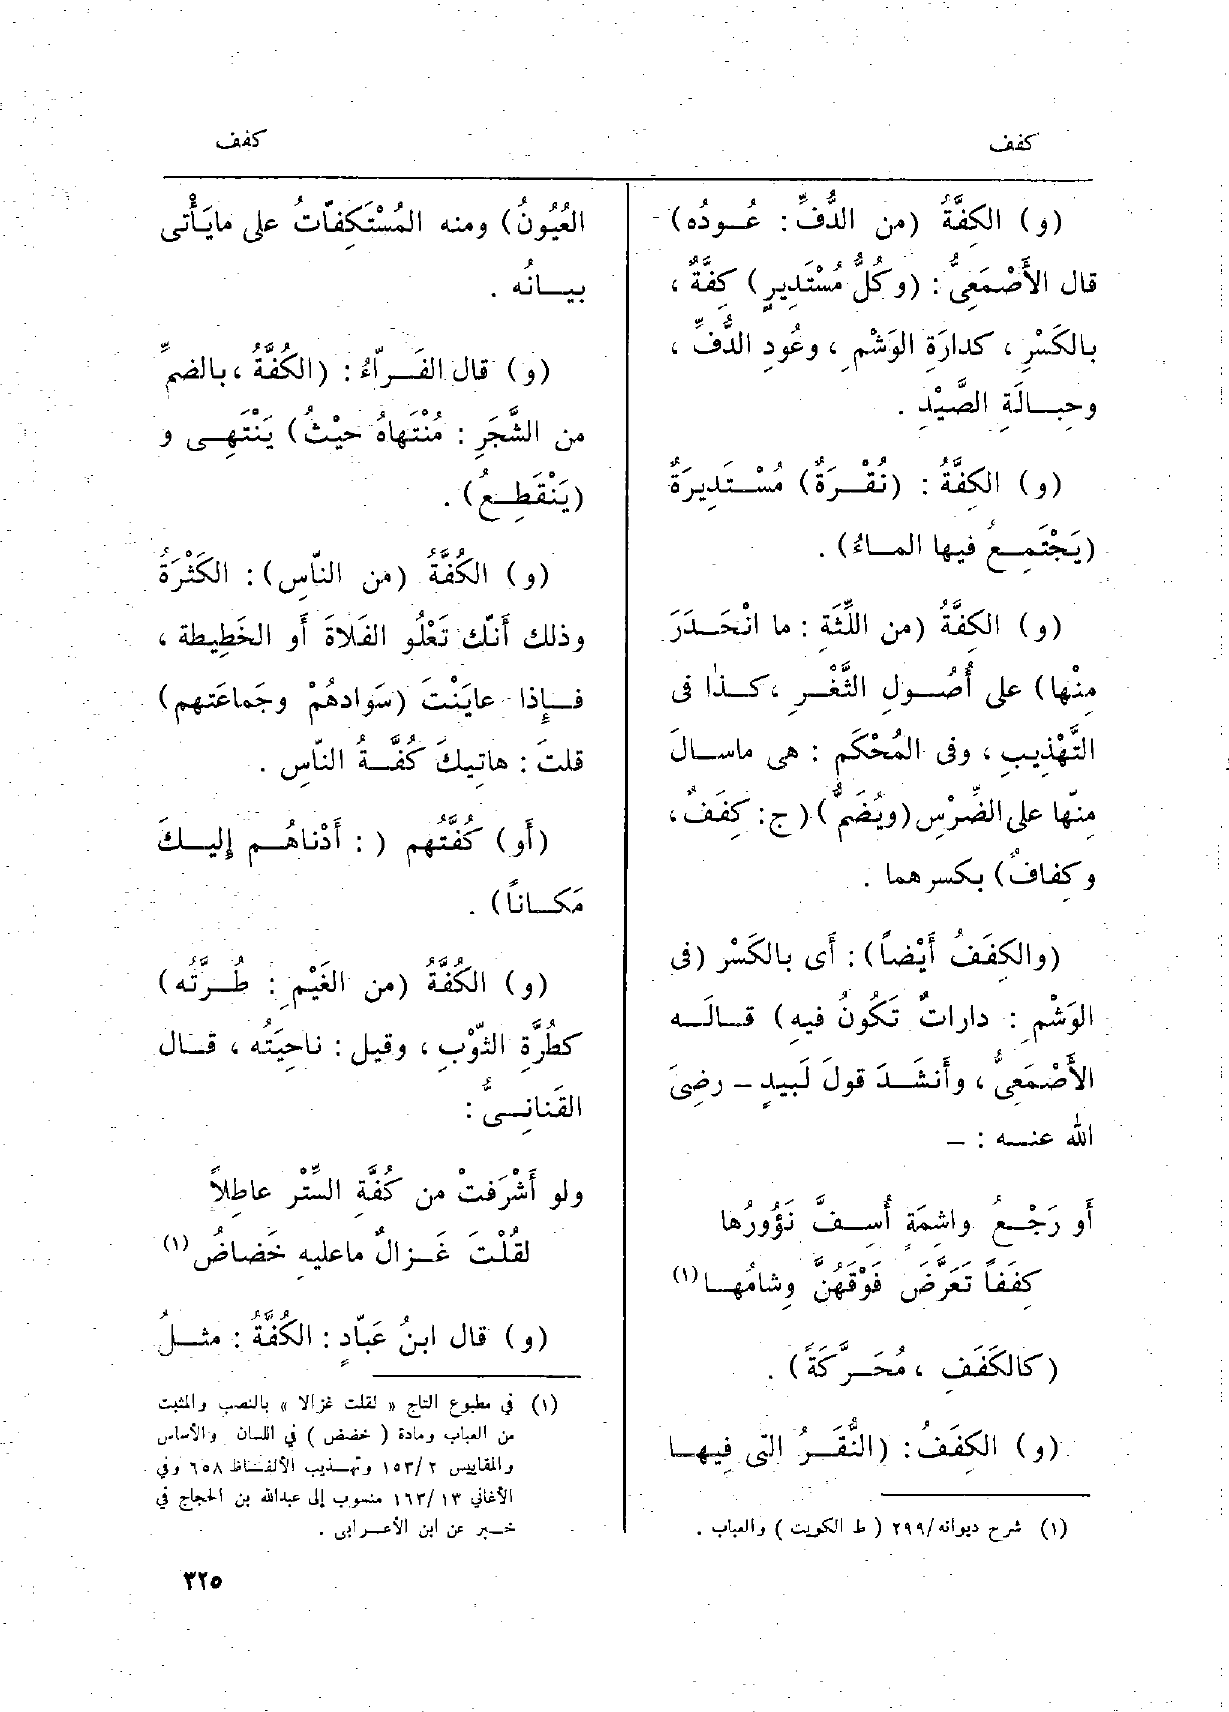 كفف
(و) الكِفَّةُ (من الدُّفِّ: عُودُه)
قال الأَصْمَعِىُّ: (وكُلُّ مُسْتَدِيرٍ) كِفَّةٌ ،
بالكَسْرِ ، كدارَةِ الوَشْمِ ، وعُودِ الدُّفِّ ،
وحِبالَةِ الصَّيْدِ .
(و) الكِفَّةُ : (نُقْرَةٌ) مُسْتَدِيرَةٌ
(يَجْتَمِعُ فيها الماءُ) .
(و) الكِفَّةُ (من اللِّثَةِ : ما انْحَدَرَ
مِنْها) على أُصُولِ الثَّغْرِ ، كذا فى
التَّهْذِيبِ ، وفى المُحْكَمِ : هى ماسالَ
مِنّها على الضِّرْسِ (ويُضَمُّ) (ج: كِفَفٌ ،
وكِفافٌ) بكسرهما .
(والكِفَفُ أَيْضاً) : أَى بالكَسْر (فى
الوَشْمِ : داراتٌ تَكُونُ فيهِ) قالَه
الأَصْمَعِىُّ ، وأَنشَدَ قولَ لَبيدٍ – رضِىَ
اللهُ عنه : –
أَو رَجْعُ واشِمَةٍ أُسِفَّ نَؤُورُها
كِفَفاً تَعَرَّضَ فَوْقَهُنَّ وِشامُها (١)
(كالكَفَفِ ، مُحَرَّكَةً) .
(و) الكِفَفُ : (النُّقَرُ التى فِيها
(١) شرح ديوانه/٢٩٩ ( ط الكويت ) والعباب .
كفف
العُيُونُ) ومنه المُسْتَكِفّاتُ على مايَأْتى
بيانُه .
(و) قال الفَرّاءُ : (الكُفَّةُ ، بالضمِّ
من الشَّجَرِ : مُنْتَهاهُ حيْثُ) يَنْتَهِى و
(يَنْقَطِعُ) .
(و) الكُفَّةُ (من النّاسِ) : الكَثْرَةُ
وذلك أَنّك تَعْلُو الفَلاةَ أَو الخَطِيطة ،
فإِذا عايَنْتَ (سَوادهُمْ وجَماعَتهم)
قلتَ : هاتِيكَ كُفَّةُ النّاسِ .
(أَو) كُفَّتُهم ( : أَدْناهُم إِليكَ
مَكاناً) .
(و) الكُفَّةُ (من الغَيْمِ : طُرَّتُه)
كطُرَّةِ الثّوْبِ ، وقيل : ناحِيَتُه ، قال
القَنانِىُّ :
ولو أَشْرَفتْ من كُفَّةِ السِّتْرِ عاطِلاً
لقُلْتَ غَزالٌ ماعليهِ خَضاضُ (١)
(و) قال ابنُ عَبّادٍ : الكُفَّةُ : مثلُ
(١) في مطبوع التاج « لقلت غزالا » بالنصب والمثبت
من العباب ومادة ( خضض ) في اللسان والأساس
والمقاييس ١٥٣/٢ وتهذيب الألفاظ ٦٥٨ وفي
الأغاني ١٣ /١٦٣ منسوب إلى عبدالله بن الحجاج في
خبر عن ابن الأعرابى .
٣٢٥